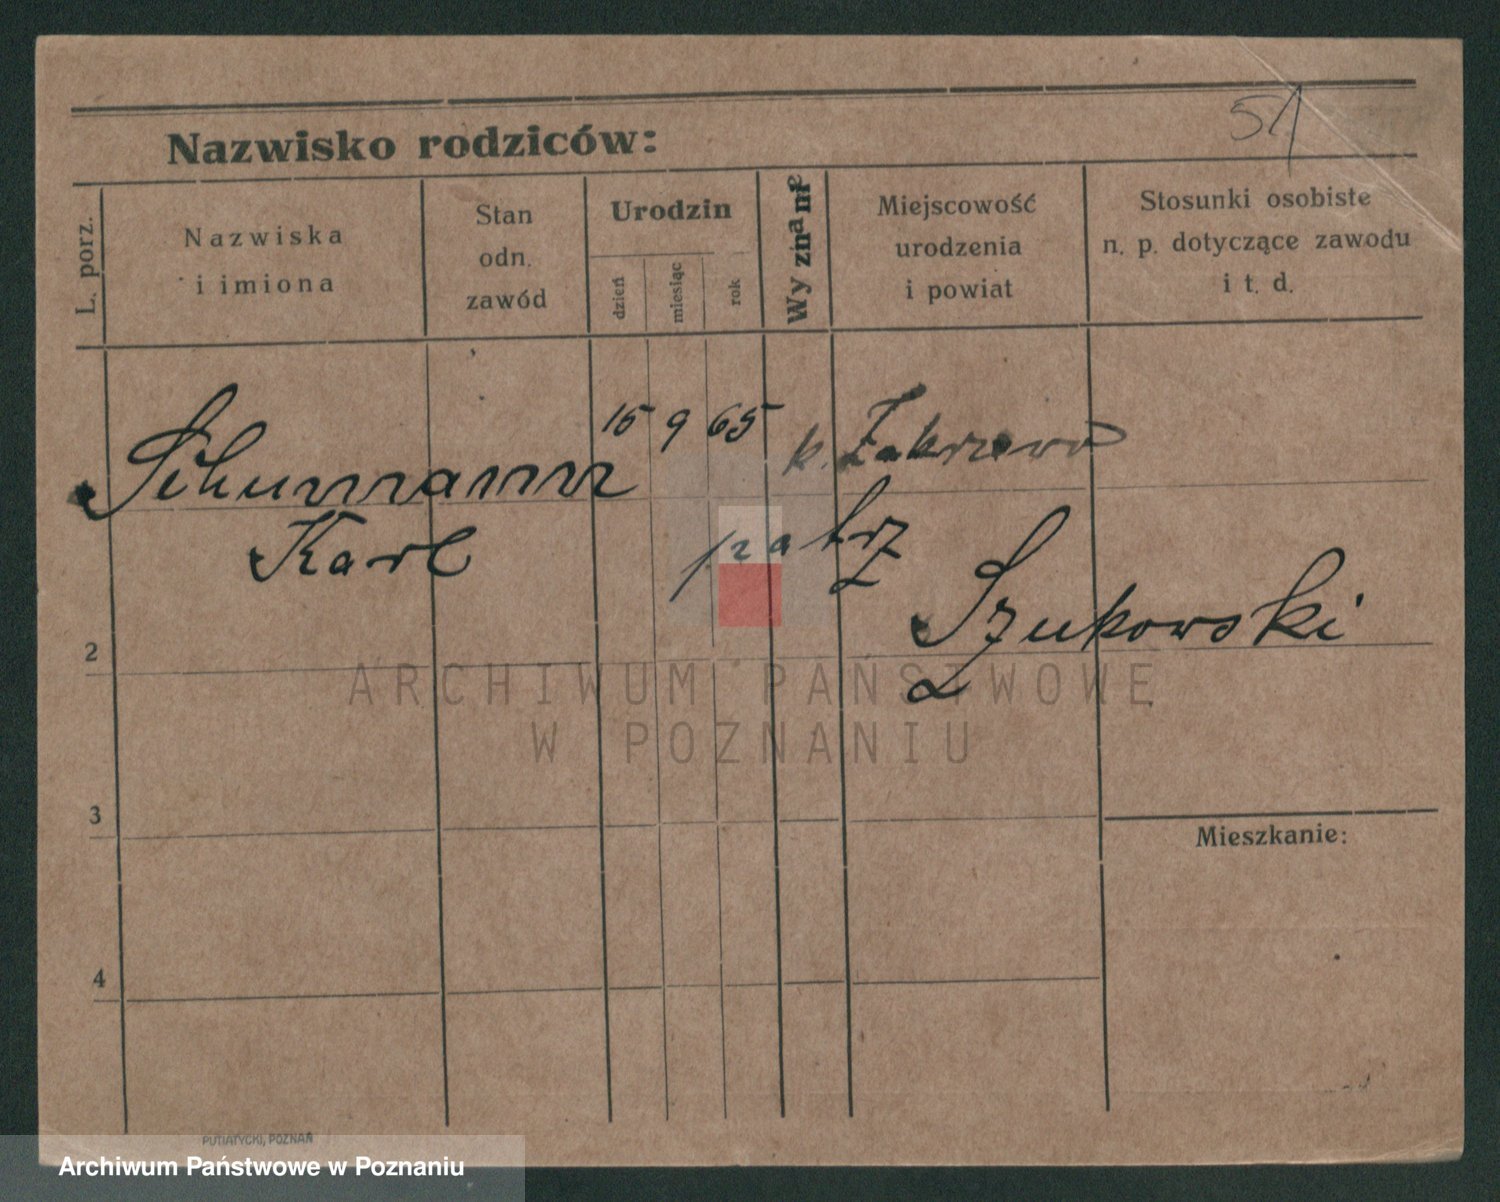 51
Nazwisko rodziców:
L. porz.
Nazwiska
i imiona
Stan
odn.
zawód
Urodzin
dzień
miesiąc
rok
Wyznanie
Miejscowość
urodzenia
i powiat
Stosunki osobiste
n. p. dotyczące zawodu
i t. d.
Schumann 15 9 65 k. Zakrzewo
Karl patrz
Szukowski
2
ARCHIWUM PAŃSTWOWE
W POZNANIU
3
Mieszkanie:
4
PUTIATYCKI, POZNAŃ
Archiwum Państwowe w Poznaniu